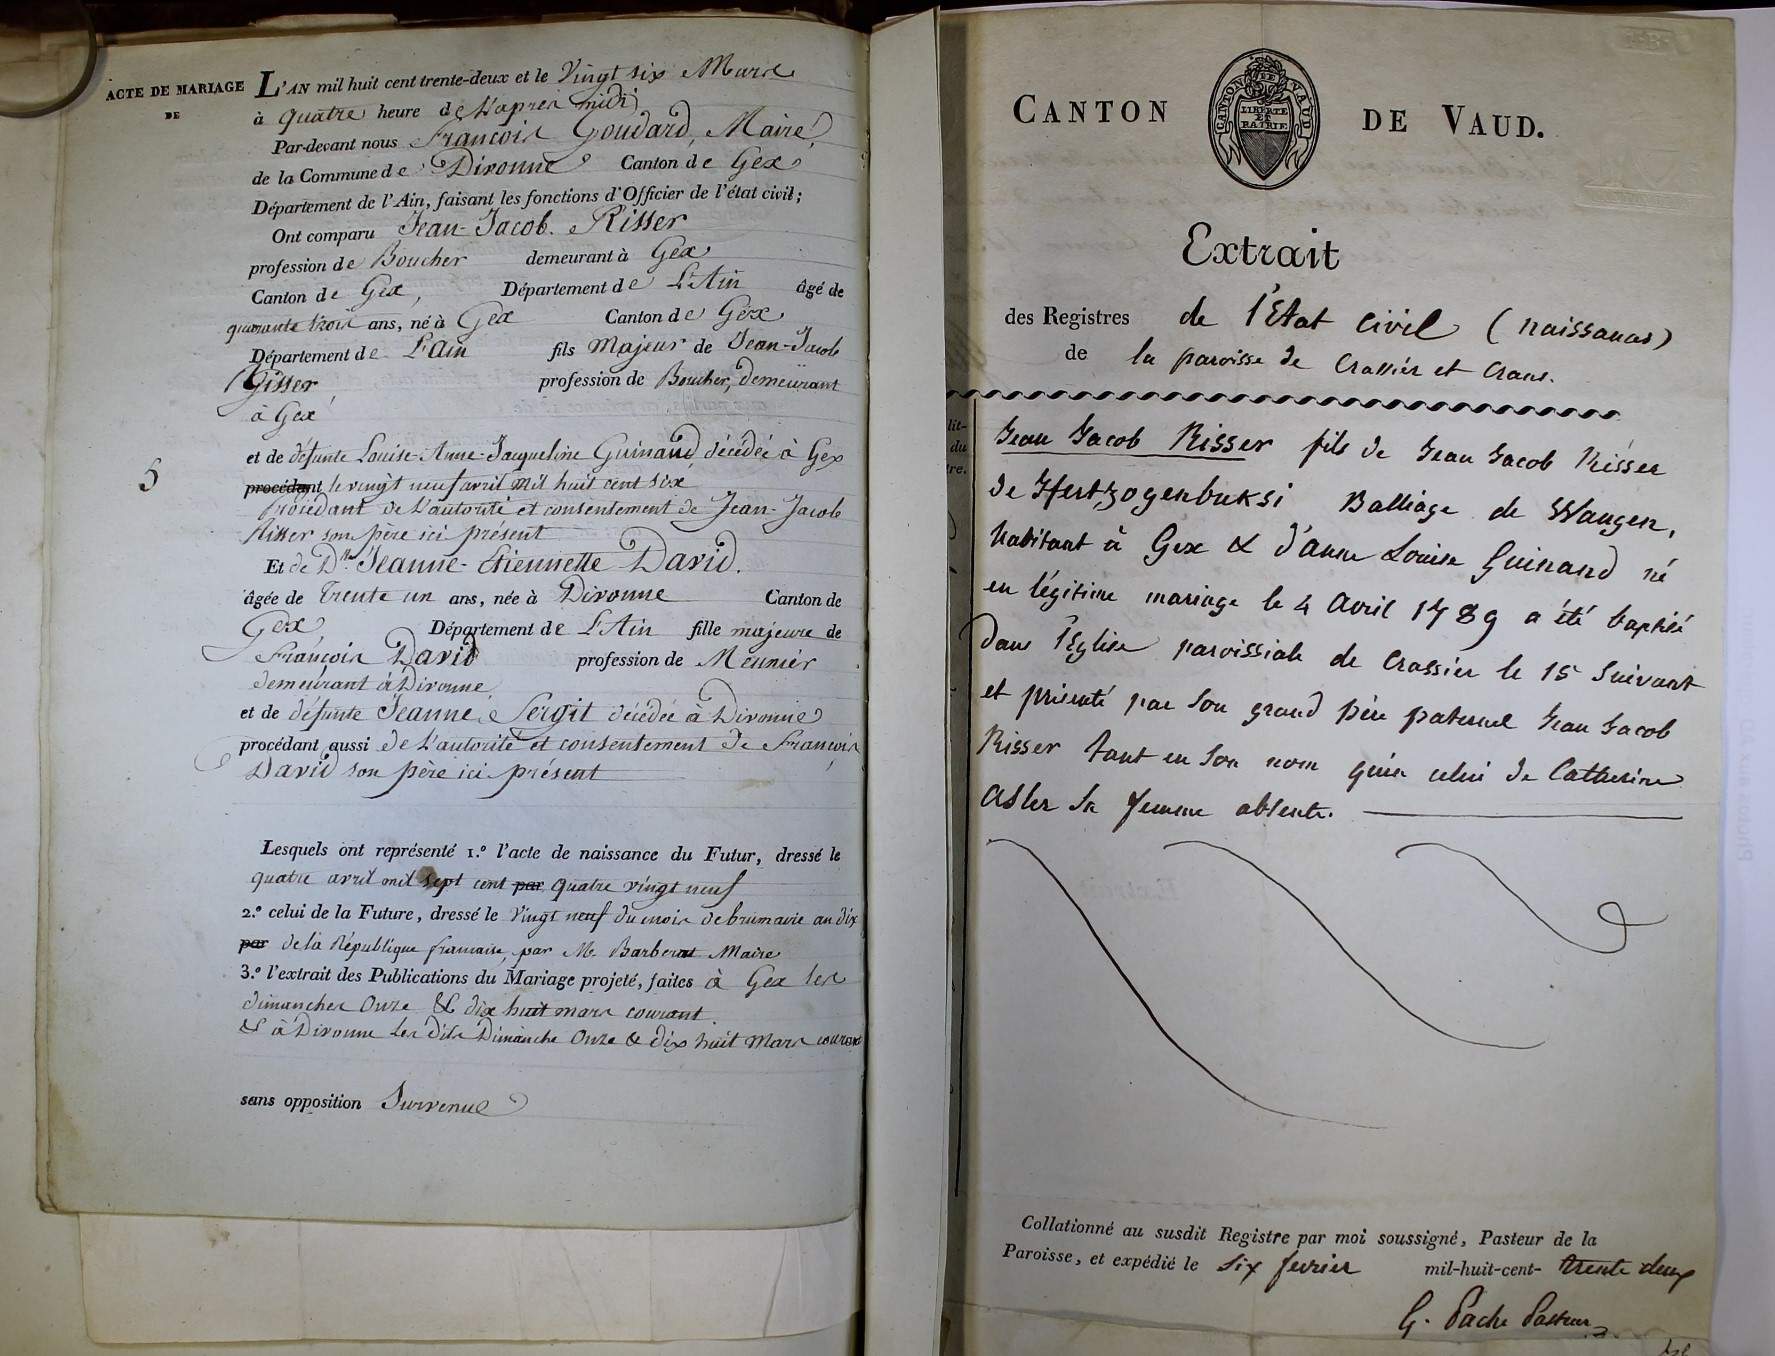 ACTE DE MARIAGE
DE
L'AN mil huit cent trente-deux et le Vingt six Mars
à quatre heure de L'après midi
Par-devant nous François Goudard, Maire,
de la Commune de Divonne Canton de Gex
Département de l'Ain, faisant les fonctions d'Officier de l'état civil;
Ont comparu Jean-Jacob. Risser
profession de Boucher demeurant à Gex
Canton de Gex, Département de L'Ain âgé de
quarante trois ans, né à Gex Canton de Gex
Département de L'Ain fils Majeur de Jean-Jacob
Risser profession de Boucher, demeurant
à Gex
et de défunte Louise-Anne-Jacqueline Guinand décédée à Gex
5
procédant le vingt neuf avril mil huit cent six
Procédant de L'autorité et consentement de Jean-Jacob
Risser son père ici présent
Et de Dlle Jeanne-Etiennette David.
âgée de Trente un ans, née à Divonne Canton de
Gex Département de L'Ain fille majeure de
François David profession de Meunier
demeurant à Divonne
et de défunte Jeanne Sergit décédée à Divonne
procédant aussi de L'autorité et consentement de François
David son père ici présent
Lesquels ont représenté 1.° l'acte de naissance du Futur, dressé le
quatre avril mil sept cent par quatre vingt neuf
2.° celui de la Future, dressé le Vingt neuf du mois de brumaire an dix
par de la République francaise, par M. Barberat Maire
3.° l'extrait des Publications du Mariage projeté, faites à Gex les
dimanches Onze & dix huit mars courant
& à Divonne les dits Dimanche Onze & dix huit Mars courant
sans opposition Survenue
CANTON DE VAUD.
CANTON DE VAUD
LIBERTE
ET
PATRIE
Extrait
des Registres de l'Etat civil (naissances)
de la paroisse de Crassier et Crans.
lit-
du
re.
Jean Jacob Risser fils de Jean Jacob Risser
de Hertzogenbuksi Balliage de Wangen,
habitant à Gex & d'Anne Louise Guinand né
en légitime mariage le 4 Avril 1789 a été baptisé
dans l'Eglise paroissiale de Crassier le 15 suivant
et présenté par son grand père paternel Jean Jacob
Risser tant en son nom qu'en celui de Catherine
Asler sa femme absente.
Collationné au susdit Registre par moi soussigné, Pasteur de la
Paroisse, et expédié le six fevrier mil-huit-cent- trente deux
G. Pache Pasteur